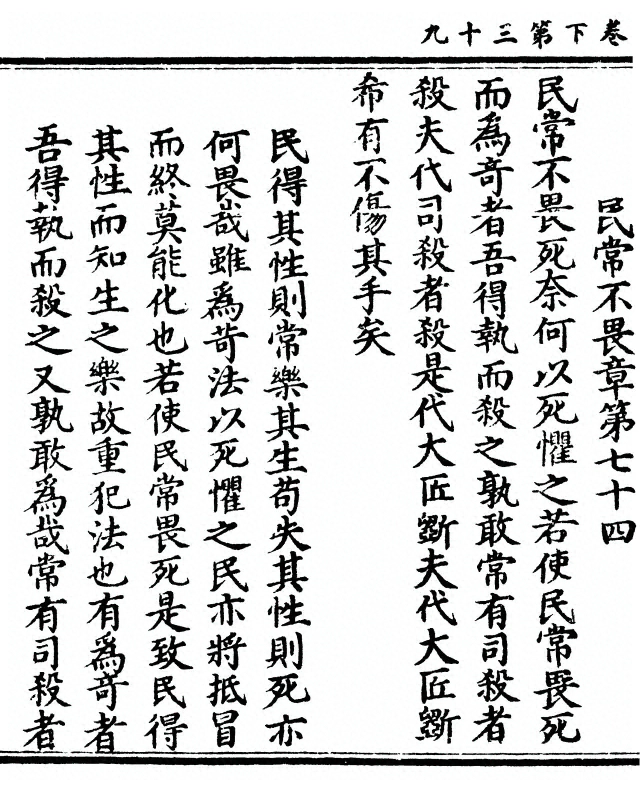 卷下第三十九
民常不畏章第七十四
民常不畏死奈何以死懼之若使民常畏死
而為奇者吾得執而殺之孰敢常有司殺者
殺夫代司殺者殺是代大匠斵夫代大匠斵
希有不傷其手矣
民得其性則常樂其生苟失其性則死亦
何畏哉雖為苛法以死懼之民亦將抵冒
而終莫能化也若使民常畏死是致民得
其性而知生之樂故重犯法也有為奇者
吾得執而殺之又孰敢為哉常有司殺者